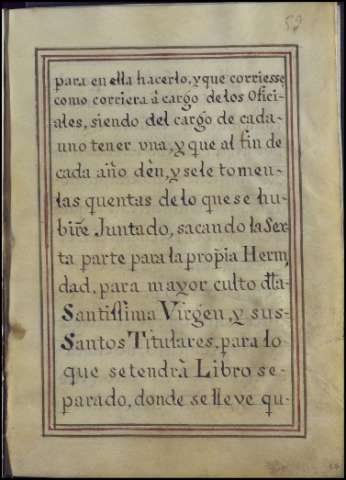 59
para en ella hacerlo, y que corriesse
como corriera â cargo de los Ofici-
ales, siendo del cargo de cada-
uno tener vna, y que al fin de
cada año dèn, y sele tomen-
las quentas de lo que se hu-
biře Juntado, sacando la Sex-
ta parte para la prop̃ia Herm̃,
dad, para mayor culto đla-
Santissima Virgen, y sus-
Santos Titulares, para lo
que setendrà Libro se-
parado, donde se lleve qu-